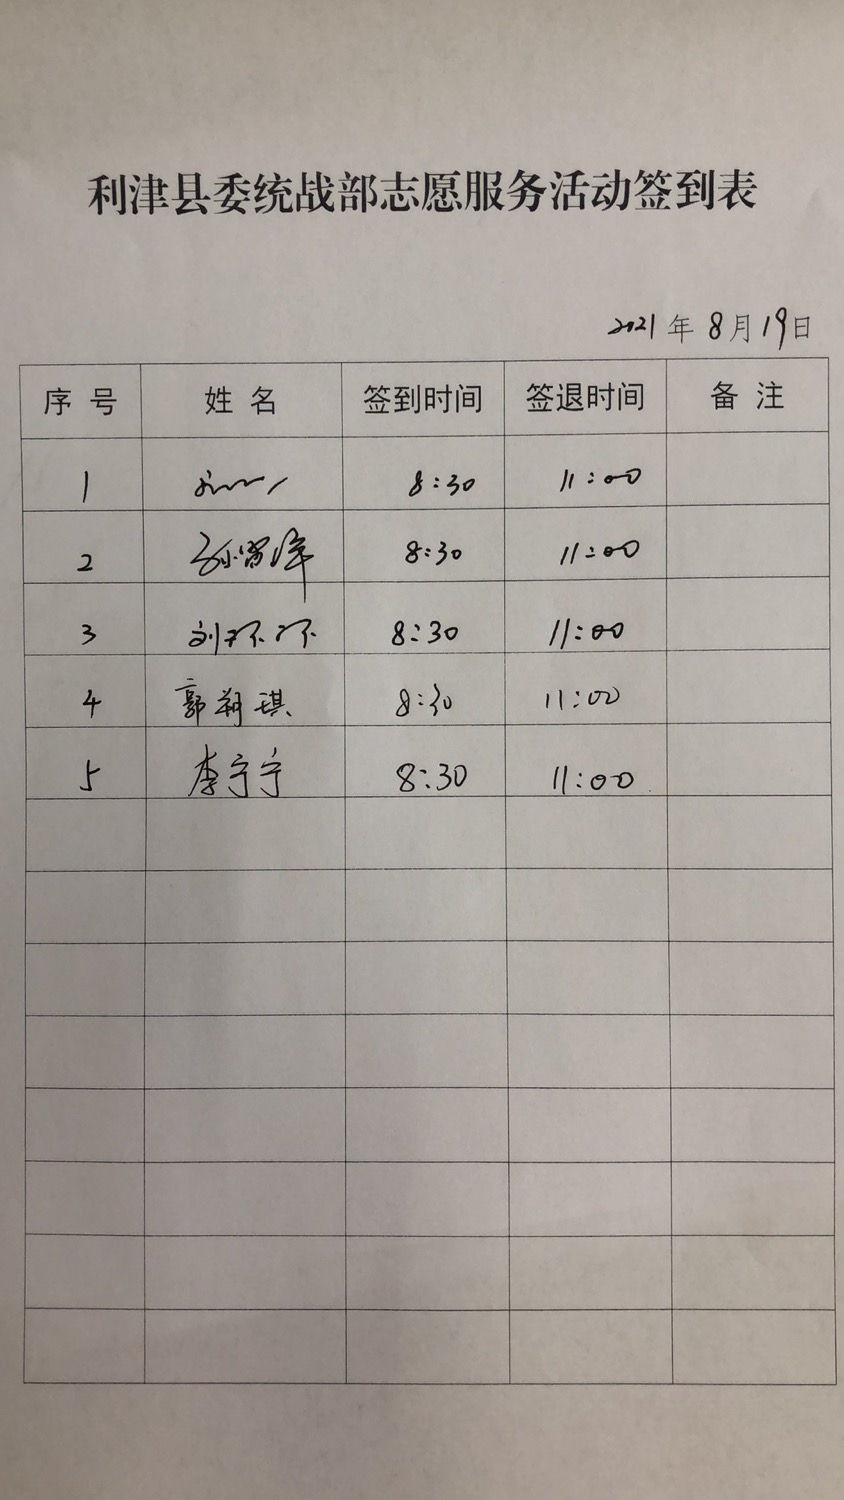 利津县委统战部志愿服务活动签到表
2021年8月19日
序号 姓名 签到时间 签退时间 备注
1 8:30 11:00
2 孙 8:30 11:00
3 刘环环 8:30 11:00
4 郭朔琪 8:30 11:00
5 李宁宁 8:30 11:00